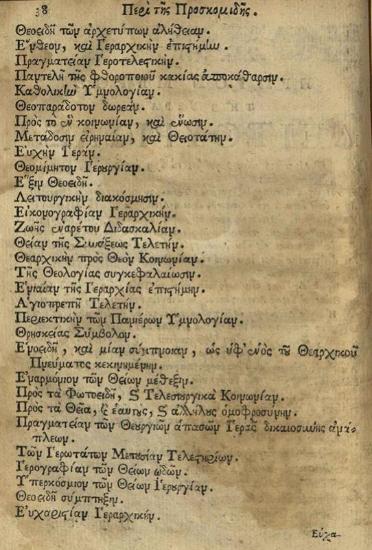 38 Περὶ τῆς Προσκομιδῆς.
Θεοειδῆ τῶν ἀρχετύπων ἀλήθειαν.
Ἔνθεον, καὶ Γεραρχικὴν ἐπιςήμίω.
Πραγματείαν Γεροτελεςικήν.
Παντελῆ τῆς φθοροποιοῦ κακίας ἀποκάθαρσιν.
Καθολικίω Ὑμνολογίαν.
Θεοπαράδοτον δωρεάν.
Πρὸς τὸ ἓν κοινωνίαν, καὶ ἕνωσιν.
Μετάδοσιν εἰρηναίαν, καὶ Θειοτάτην.
Εὐχὴν Γεράν.
Θεομίμητον Γερουργίαν.
Ἕξιν Θεοειδῆ.
Λειτουργικὴν διακόσμησιν.
Εἰκονογραφίαν Γεραρχικήν.
Ζωῆς ἐναρέτου Διδασκαλίαν.
Θείαν τῆς Συνάξεως Τελετήν.
Θεαρχικὴν πρὸς Θεὸν Κοινωνίαν.
Τῆς Θεολογίας συγκεφαλαίωσιν.
Ἑνιαίαν τῆς Γεραρχίας ἐπιςήμην.
Ἁγιοπρεπῆ Τελετήν.
Περιεκτικὴν τῶν Πανιέρων Ὑμνολογίαν.
Θρησκείας Σύμβολον.
Ἑνοειδῆ, καὶ μίαν σύμπνοιαν, ὡς ὑφ' ἑνὸς τοῦ Θεαρχικοῦ
Πνεύματος κεκινημένην.
Ἐναρμόνιον τῶν Θείων μέθεξιν.
Πρὸς τὰ Φωτοειδῆ, ϗ Τελεσιουργικὰ Κοινωνίαν.
Πρὸς τὰ Θεῖα, ϗ ἑαυτὺς, ϗ ἀλλήλυς ὁμοφροσύνην.
Πραγματείαν τῶν Θεουργιῶν ἁπασῶν Γερᾶς δικαιοσύνης ἀνά-
πλεων.
Τῶν Γερωτάτων Μετουσίαν Τελεςηρίων.
Γερογραφίαν τῶν Θείων ᾠδῶν.
Ὑπερκόσμιον τῶν Θείων Γερουργίαν.
Θεοειδῆ σύμπτηξιν.
Εὐχαριςίαν Γεραρχικήν.
Εὐχα-